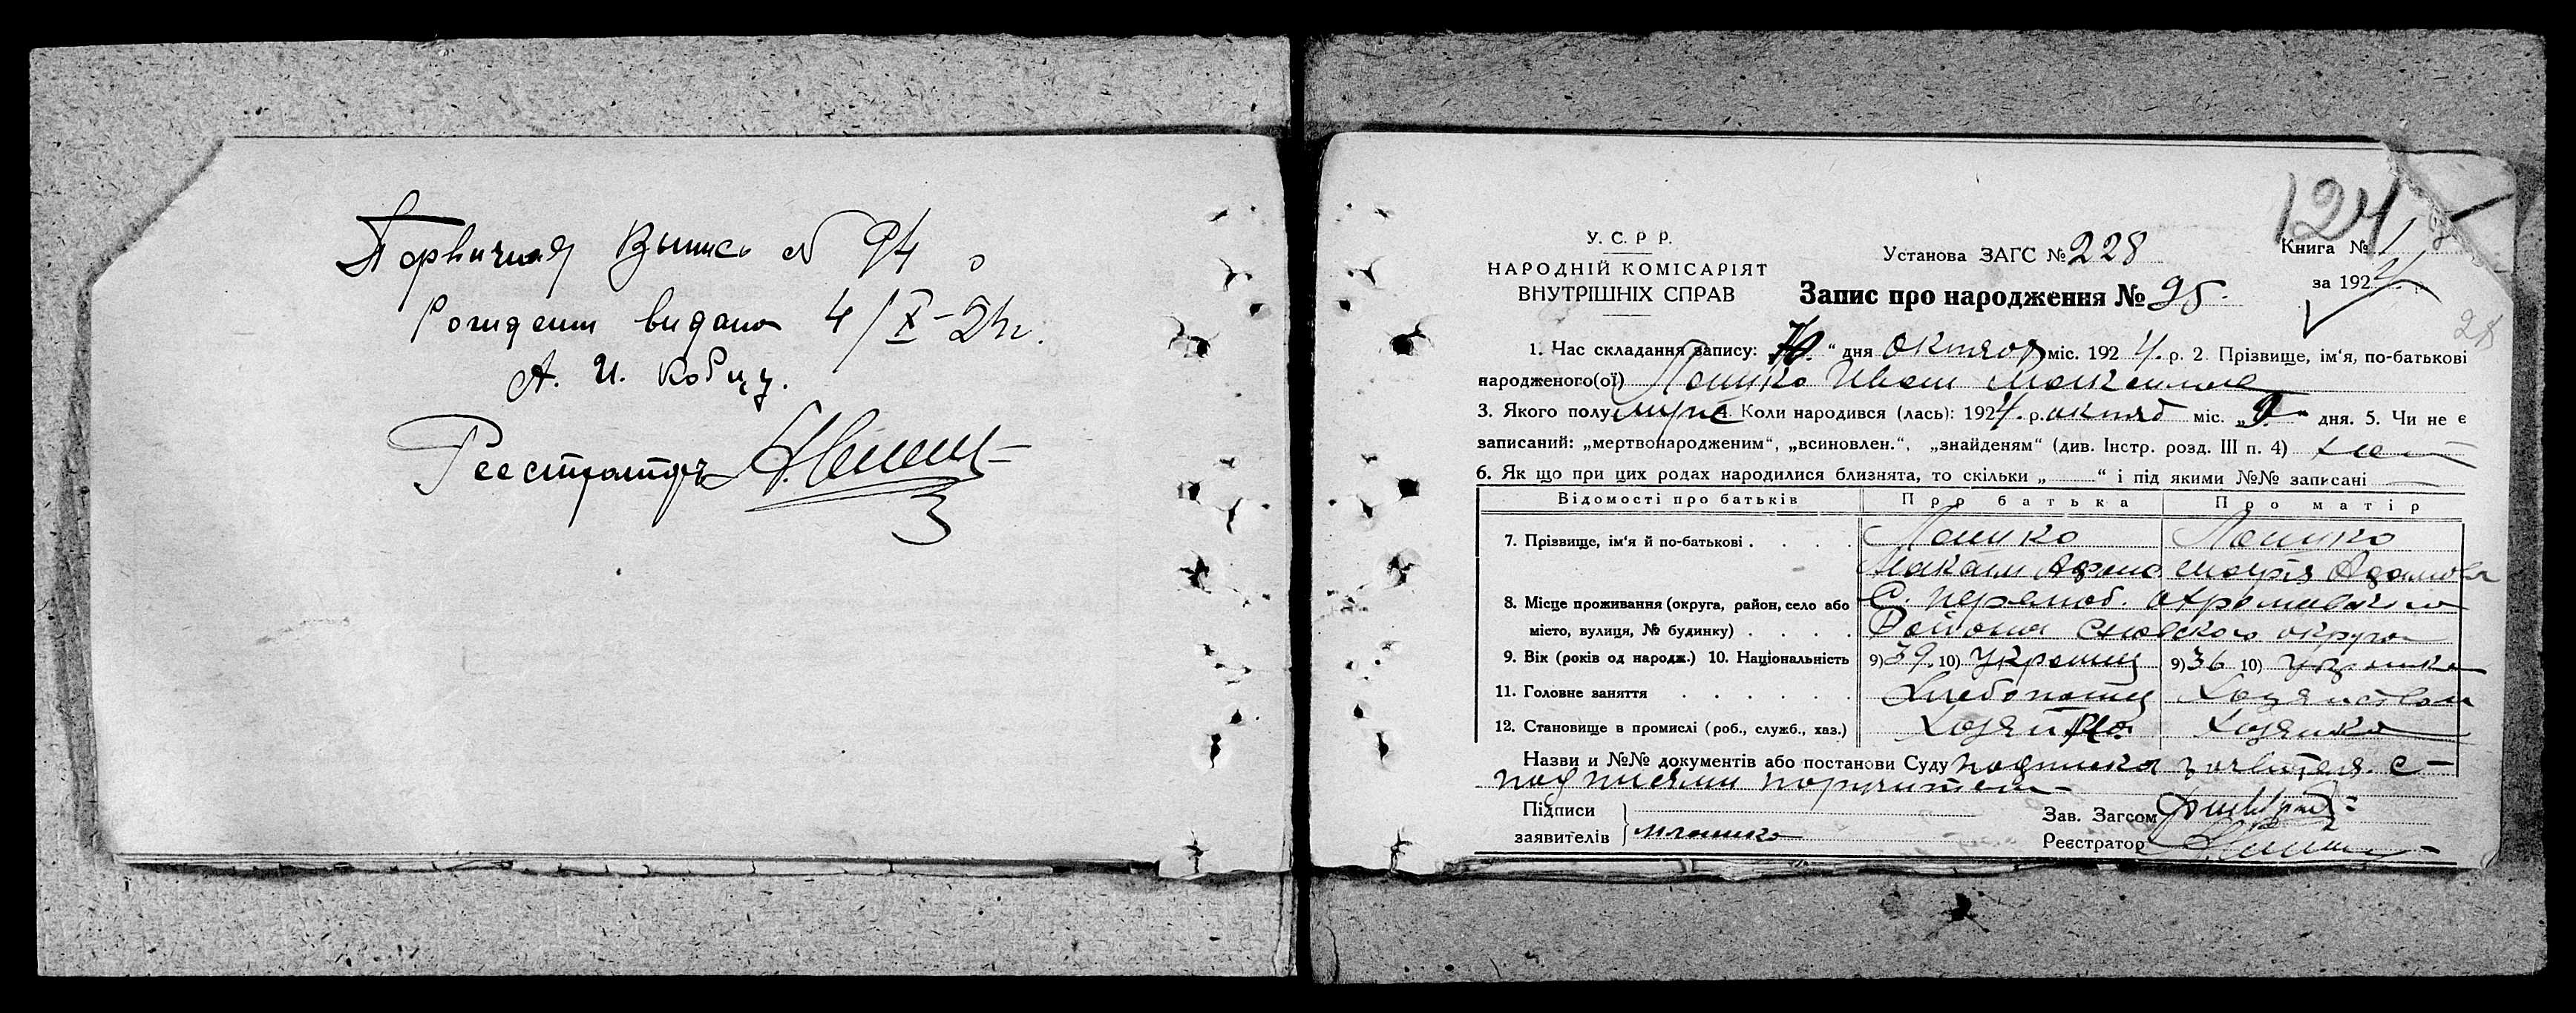 Первичная Выпись № 94 о
Рождении видана 4/X-24 г.
А. И. Кобцу.
Реестратор
124
У. С. Р Р.
НАРОДНІЙ КОМІСАРІЯТ
ВНУТРІШНІХ СПРАВ
Установа ЗАГС № 228
Запис про народження № 95.
Книга № 1
за 1924
28
1. Час складання запису: „ “ дня октября міс. 1924. р. 2. Прізвище, ім‘я, по-батькові
народженого(ої) Лошко Иван Максимов
3. Якого полу муж 4. Коли народився (лась): 1924. р. октяб міс. „ “ дня. 5. Чи не є
записаний: „мертвонародженим“, „всиновлен.“, „знайденям“ (див. Інстр. розд. III п. 4)
6. Як що при цих родах народилися близнята, то скільки „ “ і під якими №№ записані
Відомості про батьків Про батька Про матір
7. Прізвище, ім‘я й по-батькові . . . . Лошко Лошко
Адамова
8. Місце проживання (округа, район, село або С.
місто, вулиця, № будинку) . . . . Района Сновского округа
9. Вік (років од народж.) 10. Національність 9) 39. 10) Украинец 9) 36 10) украинка
11. Головне заняття . . . . . . Хлебопашец Хозяйством
12. Становище в промислі (роб., служб., хаз.) Хозяин Хозяйка
Назви и №№ документів або постанови Суду подписка заявителя с
подписями поручителей
Підписи
заявителів
Зав. Загсом
Реєстратор